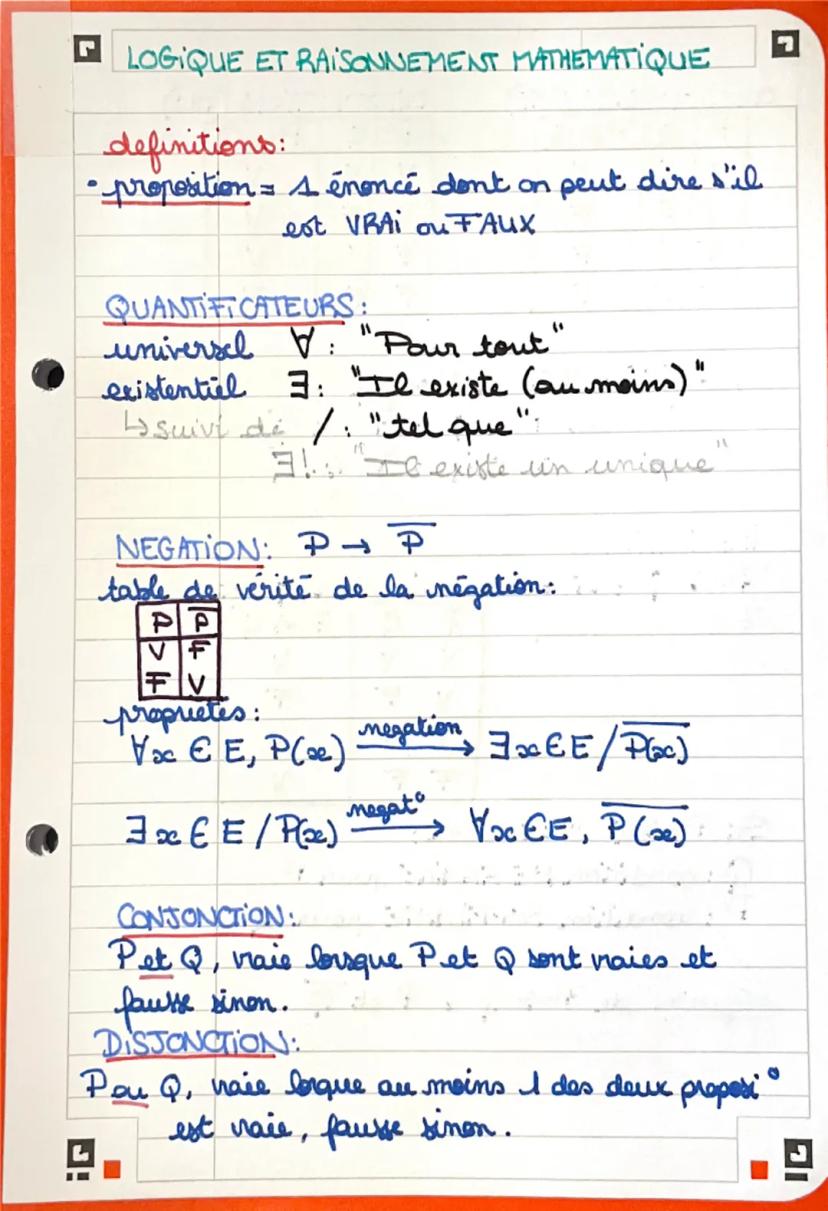 LOGIQUE ET RAISONNEMENT MATHEMATIQUE
definitions:
• proposition = 1 énoncé dont on peut dire s'il
est VRAI ou FAUX
QUANTIFICATEURS:
universel ∀ : "Pour tout"
existentiel ∃ : "Il existe (au moins)"
↳ suivi de / : "tel que"
∃! : "Il existe un unique"
NEGATION: P → P̅
table de vérité de la négation:
P P̅
V F
F V
propriétés:
∀x ∈ E, P(x) —negation→ ∃x ∈ E / P̅(̅x̅)̅
∃x ∈ E / P(x) —negat°→ ∀x ∈ E, P̅(̅x̅)̅
CONJONCTION:
P et Q, vraie lorsque P et Q sont vraies et
fausse sinon.
DISJONCTION:
P ou Q, vraie lorque au moins 1 des deux proposi°
est vraie, fausse sinon.